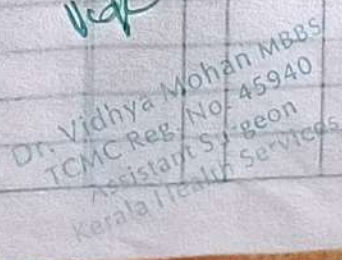 Dr. Vidhya Mohan MBBS
TCMC Reg. No: 45940
Assistant Surgeon
Kerala Health Services